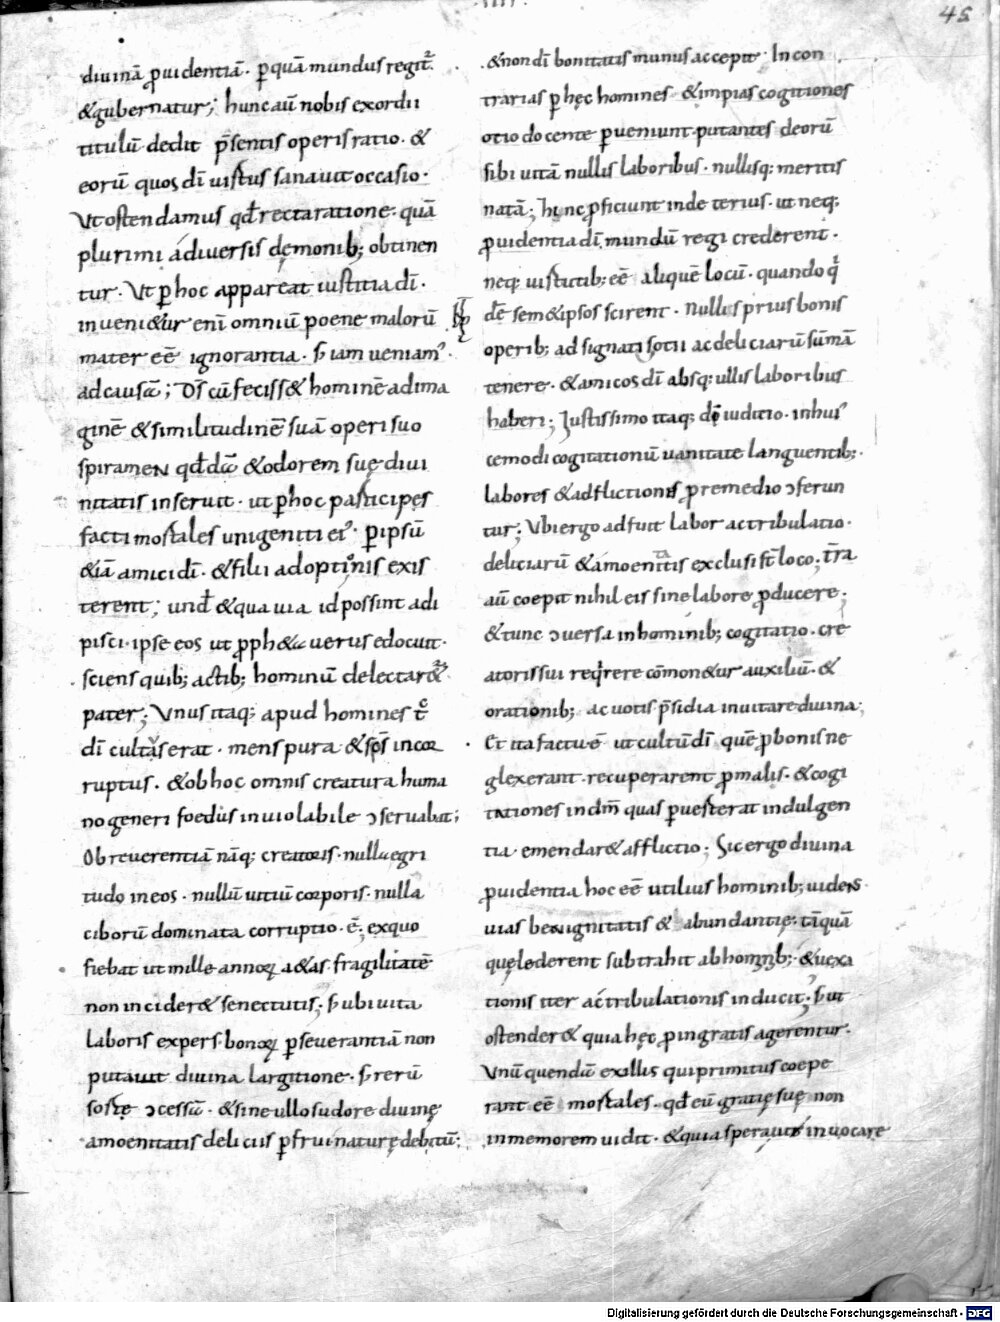 45
diuinā ꝓuidentiā · ꝑquā mundus regit᷑
&gubernatur; hunc aū nobis exordii
titulū dedit p̄sentis operis ratio · &
eorū quos dī uirtus sanauit occasio ·
Vt ostendamus qđ recta ratione · quā
plurimi a diuersis demonib; obtinen
tur · Vt ꝑ hoc appareat iustitia dī ·
inueni&ur eni omniū poene malorū
mater eē ignorantia · s; iam ueniam᾽
ad causā; Ds̄ cū feciss& hominē ad ima
ginē & similitudinē suā operi suo
spiramen qđdā & odorem suę diui
nitatis inseruit · ut ꝑ hoc participes
facti mortales unigeniti ei᾽ · ꝑ ipsū
&iā amici dī · & filii adoptionis exis
terent; unđ & qua uia id possint adi
pisci · ipse eos ut ꝓph&a uerus edocuit ·
sciens quib; actib; hominū delectar&
pater; Vnus itaq; apud homines t̄c
dī cultus erat · mens pura & sp̄s incor
ruptus · & ob hoc omnis creatura huma
no generi foedus inuiolabile ↄseruabat;
Ob reuerentiā nāq; creatoris · nulla egri
tudo in eos · nullū uitiū corporis · nulla
ciborū dominata corruptio · ē; ex quo
fiebat ut mille annoꝝ a&as fragilitatē
non incider& senectutis; s; ubi uita
laboris expers · bonoꝝ ꝑseuerantiā non
putauit diuina largitione · s; rerū
sorte ↄcessā · & sine ullo sudore diuinę
amoenitatis deliciis ꝑfrui naturę debitū;
& non dī bonitatis munus accepit · In con
trarias ꝑ hęc homines & impias cogitiones
otio docente ꝑueniunt putantes deorū
sibi uitā nullis laboribus · nullisq; meritis
natā; hinc ꝓficiunt inde terius · ut neq;
ꝓuidentia dī mundū regi crederent ·
neq; uirtutib; eē aliquē locū · quando q
dē sem&ipsos scirent · Nullis prius bonis
operib; adsignati sotii ac deliciarū sūmā
tenere · & amicos dī absq; ullis laboribus
haberi; Iustissimo itaq; dī iuditio · in hui᾽
cemodi cogitationū uanitate languentib; ·
labores & adflictionis ꝓ remedio ↄferun
tur; Vbi ergo adfuit labor ac tribulatio ·
deliciarū & amoenitatis exclusi st̄ loco; tr̄ra
aū coepit nihil eis sine labore ꝓducere;
& tunc ↄuersa in hominib; cogitatio · cre
atoris sui reqrere cōmon&ur auxiliū · &
orationib; ac uotis p̄sidia inuitare diuina;
Et ita factū ē ut cultū dī quē ꝓ bonis ne
glexerant recuperarent ꝓ malis · & cogi
tationes in dm̄ quas ꝑuerterat indulgen
tia emendar& afflictio; Sic ergo diuina
ꝓuidentia hoc eē utilius hominib; uidens ·
uias benignitatis & abundantię · tāquā
que lederent subtrahit ab hominib; & uexa
tionis iter ac tribulationis inducit; s; ut
ostender& quia hęc ꝓ ingratis agerentur ·
Vnū quendā ex illis qui primitus coepe
rant eē mortales · qđ eū gratię suę non
inmemorem uidit · & quia sperauit inuocare
Digitalisierung gefördert durch die Deutsche Forschungsgemeinschaft - DFG